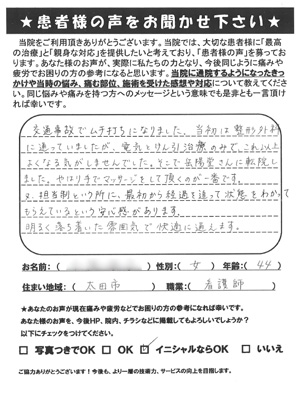 ★患者様の声をお聞かせ下さい★
当院をご利用頂きありがとうございます。当院では、大切な患者様に「最高
の治療」と「親身な対応」を提供したいと考えており、「患者様の声」を募ってお
ります。あなた様のお声が、実際に私たちの力となり、今後同じように痛みや
疲労でお困りの方の参考になると思います。当院に通院するようになったきっ
かけや当時の悩み、痛む部位、施術を受けた感想や対応について教えてくださ
い。同じ悩みや痛みを持つ方へのメッセージという意味でも是非とも一言頂け
れば幸いです。
交通事故でムチ打ちになりました。当初は整形外科
に通っていましたが、電気とけん引治療のみで、これ以上
よくなる気がしませんでした。そこで岳陽堂さんに転院し
ました。やはり手でマッサージをして頂くのが一番です。
又、担当制という所に、最初から経過を追って状態をわかって
もらえているという安心感があります。
明るく落ち着いた雰囲気で快適に過ごます。
お名前:( ) 性別:( 女 ) 年齢:( 44 )
住まい地域:( 太田市 ) 職業:( 看護師 )
★あなたのお声が現在痛みや疲労などでお困りの方の参考になれば幸いです。
あなた様のお声を、今後HP、院内、チラシなどに掲載してもよろしいでしょうか?
以下にチェックをつけてください。
□ 写真つきでOK □ OK ☑ イニシャルならOK □ いいえ
ご協力ありがとうございます!今後も、より一層の技術力、サービスの向上を目指します。